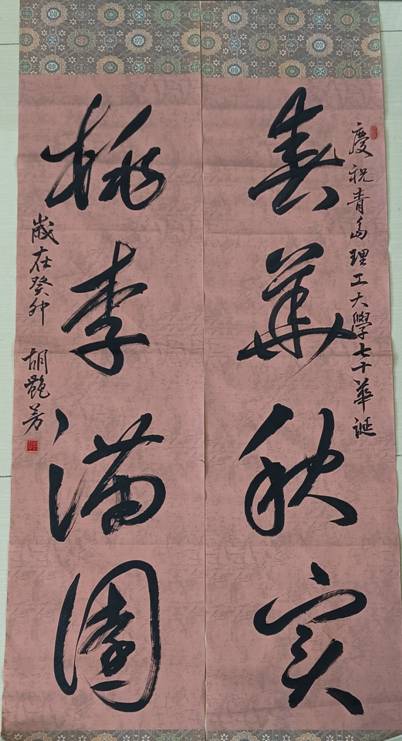 慶祝青島理工大學七十華誕
春華秋實
桃李滿園
歲在癸卯 胡艷芳